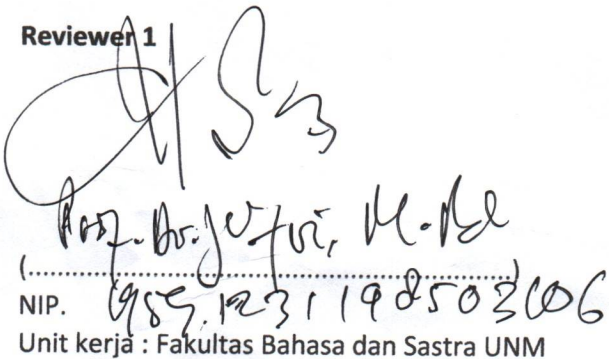 Reviewer 1
Prof. Dr. Jufri, M.Pd
(..................................................)
NIP. 19591231198503
Unit kerja : Fakultas Bahasa dan Sastra UNM